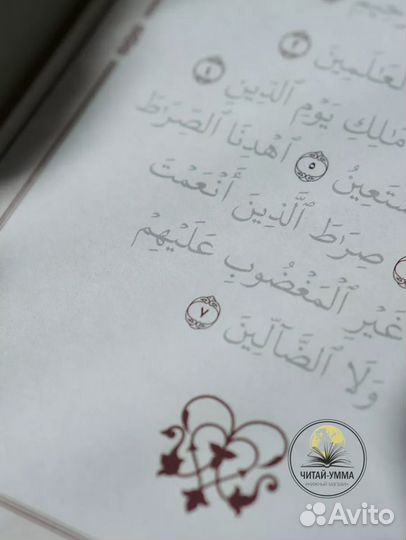 ٱلْعَـٰلَمِينَ ٢
مَـٰلِكِ يَوْمِ ٱلدِّينِ ٤
نَسْتَعِينُ ٥ ٱهْدِنَا ٱلصِّرَٰطَ
صِرَٰطَ ٱلَّذِينَ أَنْعَمْتَ
غَيْرِ ٱلْمَغْضُوبِ عَلَيْهِمْ
وَلَا ٱلضَّآلِّينَ ٧
ЧИТАЙ-УММА
КНИЖНЫЙ МАГАЗИН
Avito